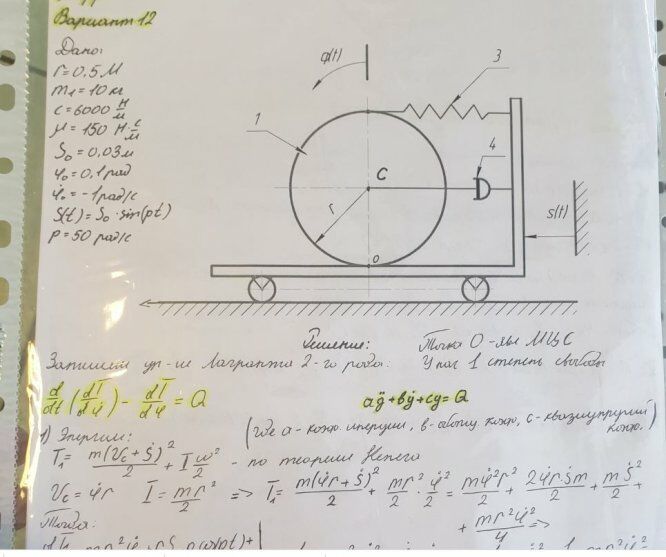 Вариант 12
Дано:
r = 0,5 м
m₁ = 10 кг
c = 6000 Н/м
μ = 150 Н·с/м
S₀ = 0,03 м
φ₀ = 0,1 рад
φ̇₀ = -1 рад/с
S(t) = S₀ · sin(pt)
p = 50 рад/с
φ(t)
3
1
4
C
D
r
s(t)
O
Решение: Точка O - явл МЦС
Запишем ур-ие Лагранжа 2-го рода. У нас 1 степень свободы
d/dt (dT/dφ̇) - dT/dφ = Q aq̈ + bq̇ + cq = Q
(где a - коэф. инерции, в - коэф., c - квазиупругий коэф.)
1) Энергии:
T₁ = m(Vc + Ṡ)²/2 + Iω²/2 - по теореме Кенига
Vc = φ̇r I = mr²/2 => T₁ = m(φ̇r + ṡ)²/2 + mr²/2 · φ̇²/2 = mφ̇²r²/2 + 2φ̇rṡm/2 + mṡ²/2 +
+ mr²φ̇²/4 =>
Тогда: